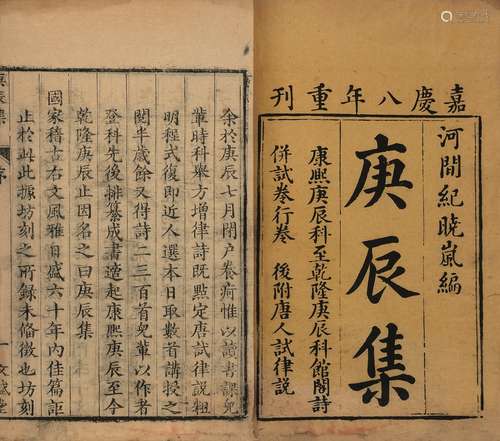 嘉慶八年重刊
河間紀曉嵐編
庚辰集
康熙庚辰科至乾隆庚辰科館閣詩
併試卷行卷 後附唐人試律說
余於庚辰七月閉户養疴惟以讀書課兒
輩時科舉方增律詩旣點定唐試律說粗
明程式復即近人選本日取數首講授之
閱半歲餘又得詩二三百首兒輩以作者
登科先後排纂成書適起康熙庚辰至今
乾隆庚辰止因名之曰庚辰集
國家稽古右文風雅日盛六十年内佳篇詎
止於此此據坊刻之所錄未備徵也坊刻
庚辰集 序 一